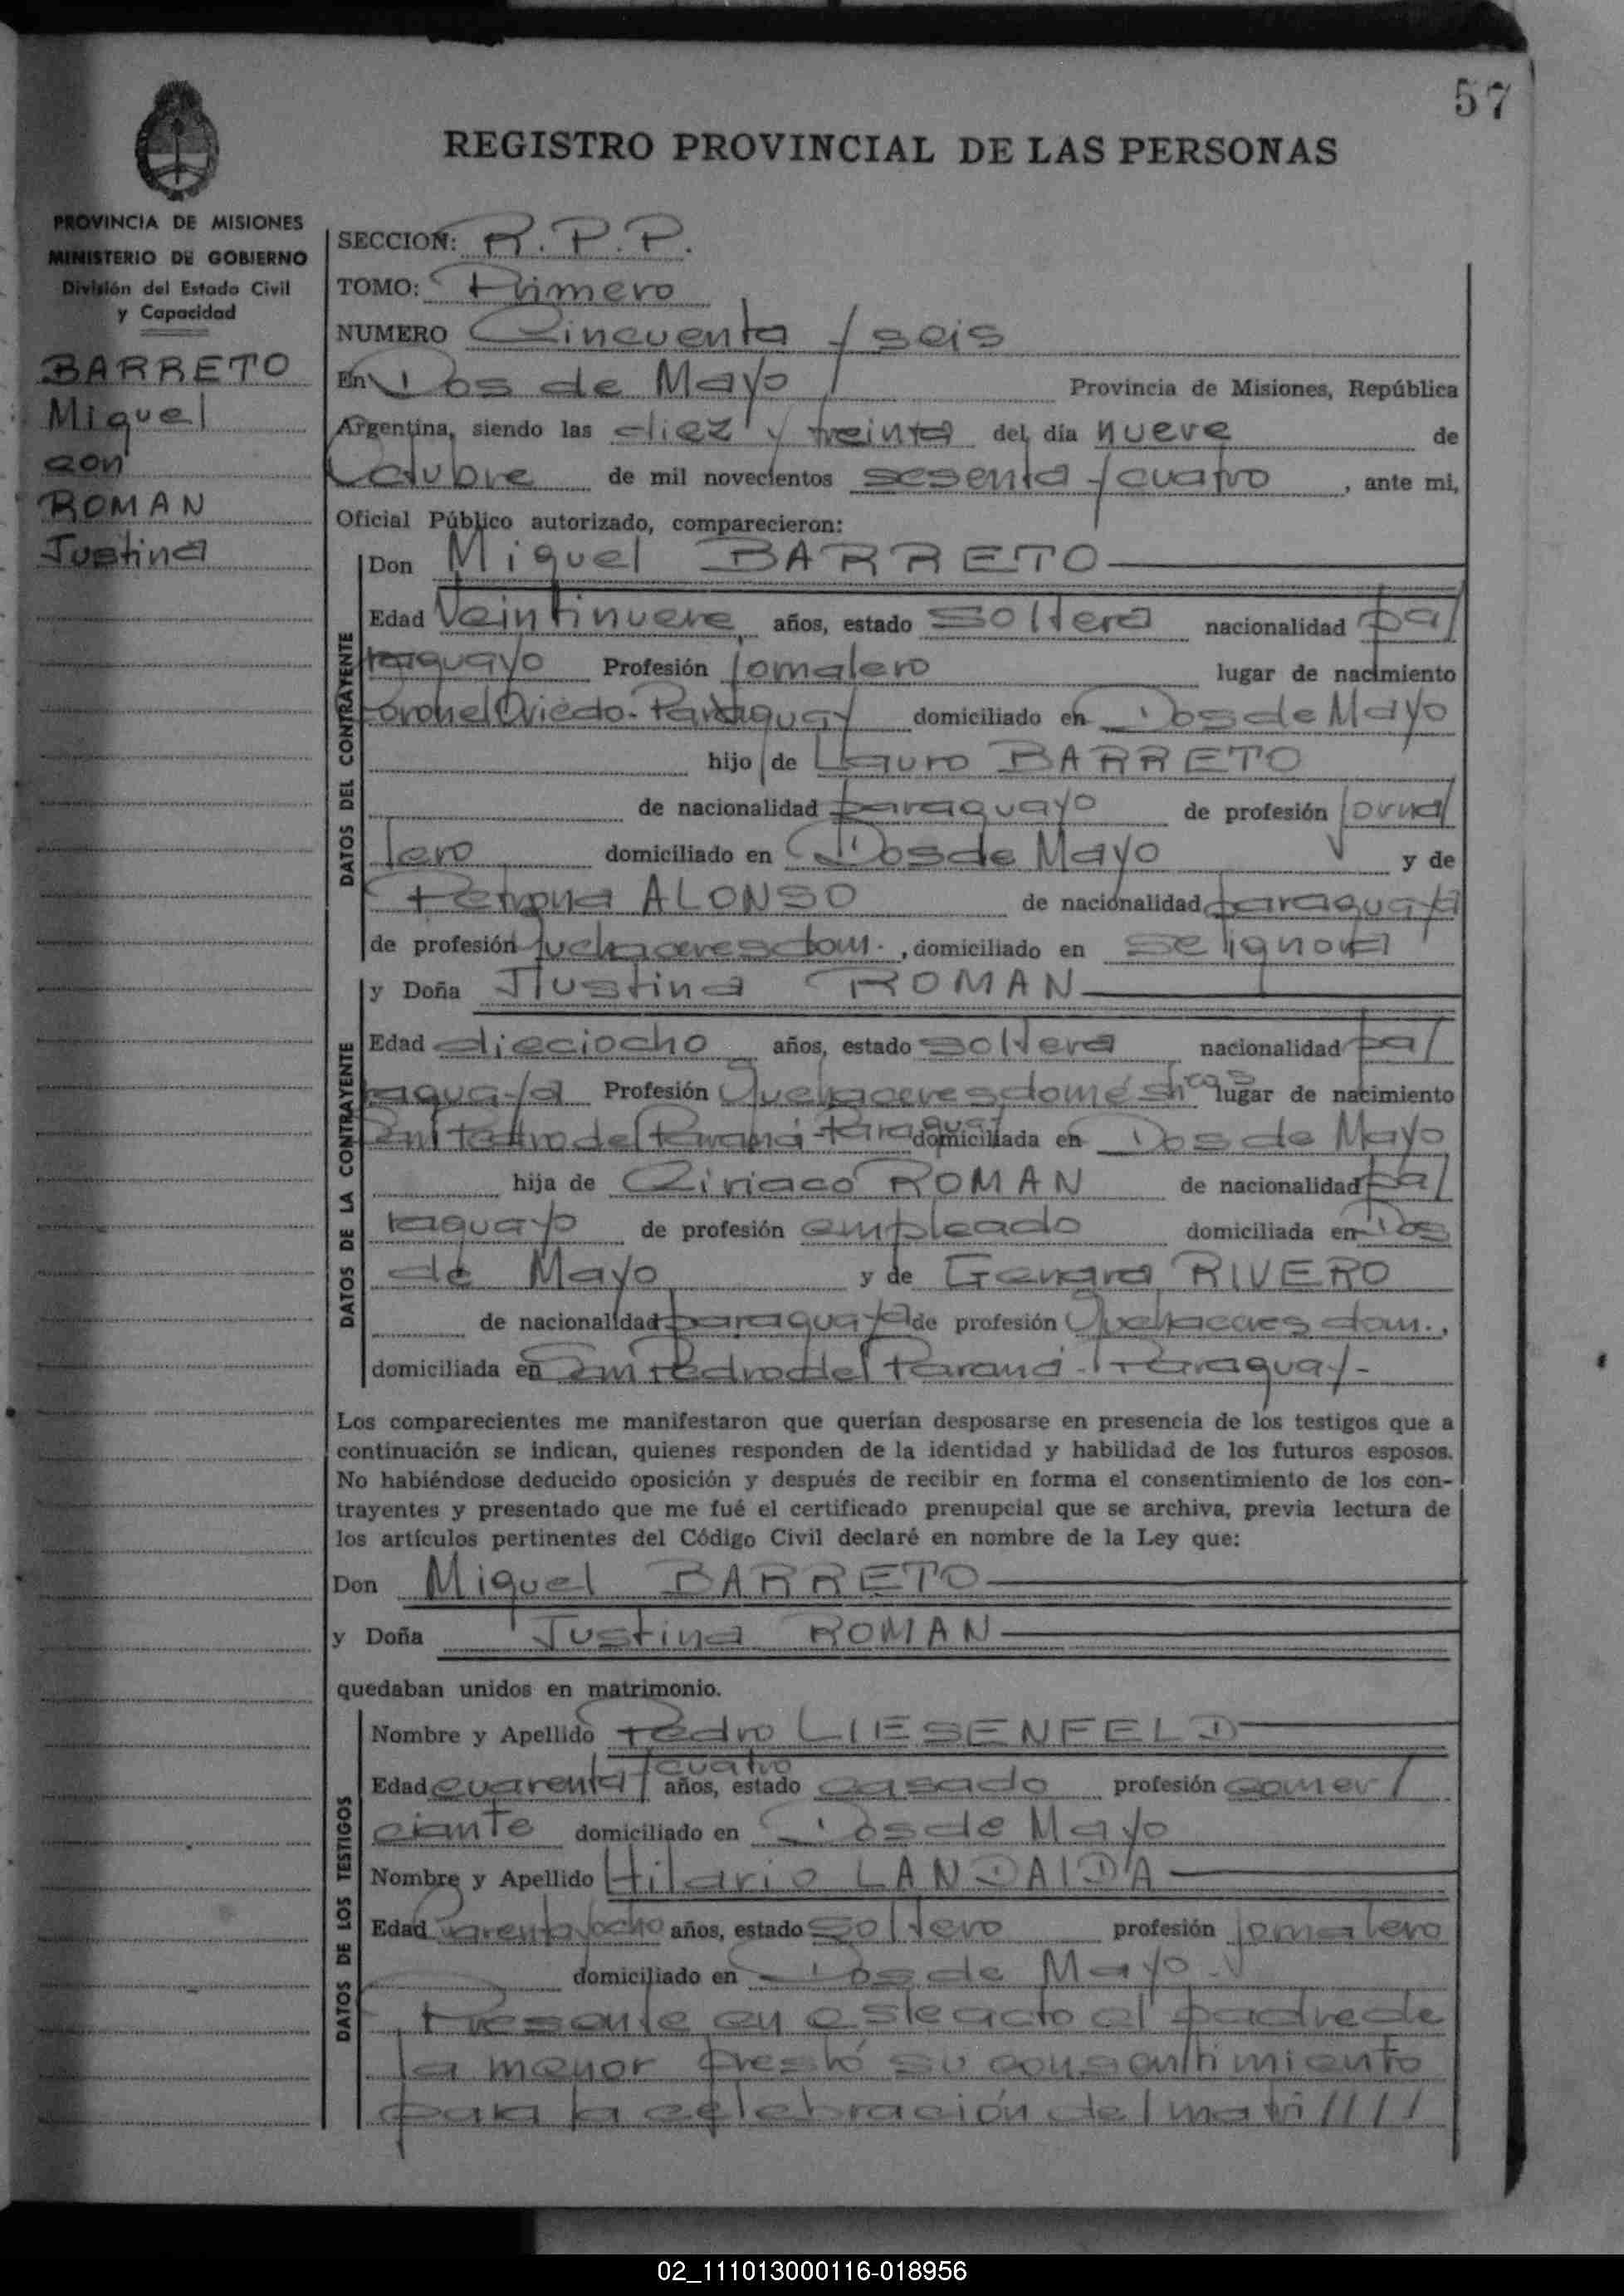 57
REGISTRO PROVINCIAL DE LAS PERSONAS
PROVINCIA DE MISIONES
MINISTERIO DE GOBIERNO
División del Estado Civil
y Capacidad
BARRETO
Miguel
con
ROMAN
Justina
SECCION: R. P. P.
TOMO: Primero
NUMERO Cincuenta y seis
En Dos de Mayo Provincia de Misiones, República
Argentina, siendo las diez y treinta del día nueve de
Octubre de mil novecientos sesenta y cuatro, ante mi,
Oficial Público autorizado, comparecieron:
DATOS DEL CONTRAYENTE
Don Miguel BARRETO
Edad Veintinueve años, estado soltero nacionalidad pa/
raguayo Profesión jornalero lugar de nacimiento
Coronel Oviedo-Paraguay domiciliado en Dos de Mayo
hijo de Lauro BARRETO
de nacionalidad paraguayo de profesión jorna/
lero domiciliado en Dos de Mayo y de
Petrona ALONSO de nacionalidad paraguaya
de profesión quehaceres dom., domiciliado en se ignora
DATOS DE LA CONTRAYENTE
y Doña Justina ROMAN
Edad dieciocho años, estado soltera nacionalidad pa/
raguaya Profesión Quehaceres domésticos lugar de nacimiento
San Pedro del Paraná-Paraguay domiciliada en Dos de Mayo
hija de Ciriaco ROMAN de nacionalidad pa/
raguayo de profesión empleado domiciliada en Dos
de Mayo y de Genara RIVERO
de nacionalidad paraguaya de profesión Quehaceres dom.,
domiciliada en San Pedro del Paraná-Paraguay-
Los comparecientes me manifestaron que querían desposarse en presencia de los testigos que a
continuación se indican, quienes responden de la identidad y habilidad de los futuros esposos.
No habiéndose deducido oposición y después de recibir en forma el consentimiento de los con-
trayentes y presentado que me fué el certificado prenupcial que se archiva, previa lectura de
los artículos pertinentes del Código Civil declaré en nombre de la Ley que:
Don Miguel BARRETO
y Doña Justina ROMAN
quedaban unidos en matrimonio.
DATOS DE LOS TESTIGOS
Nombre y Apellido Pedro LIESENFELD
Edad cuarenta y cuatro años, estado casado profesión comer/
ciante domiciliado en Dos de Mayo
Nombre y Apellido Hilario LANDAIDA
Edad Cuarenta y ocho años, estado soltero profesión jornalero
domiciliado en Dos de Mayo
Presente en este acto el padre de
la menor prestó su consentimiento
para la celebración del matri////
02_111013000116-018956